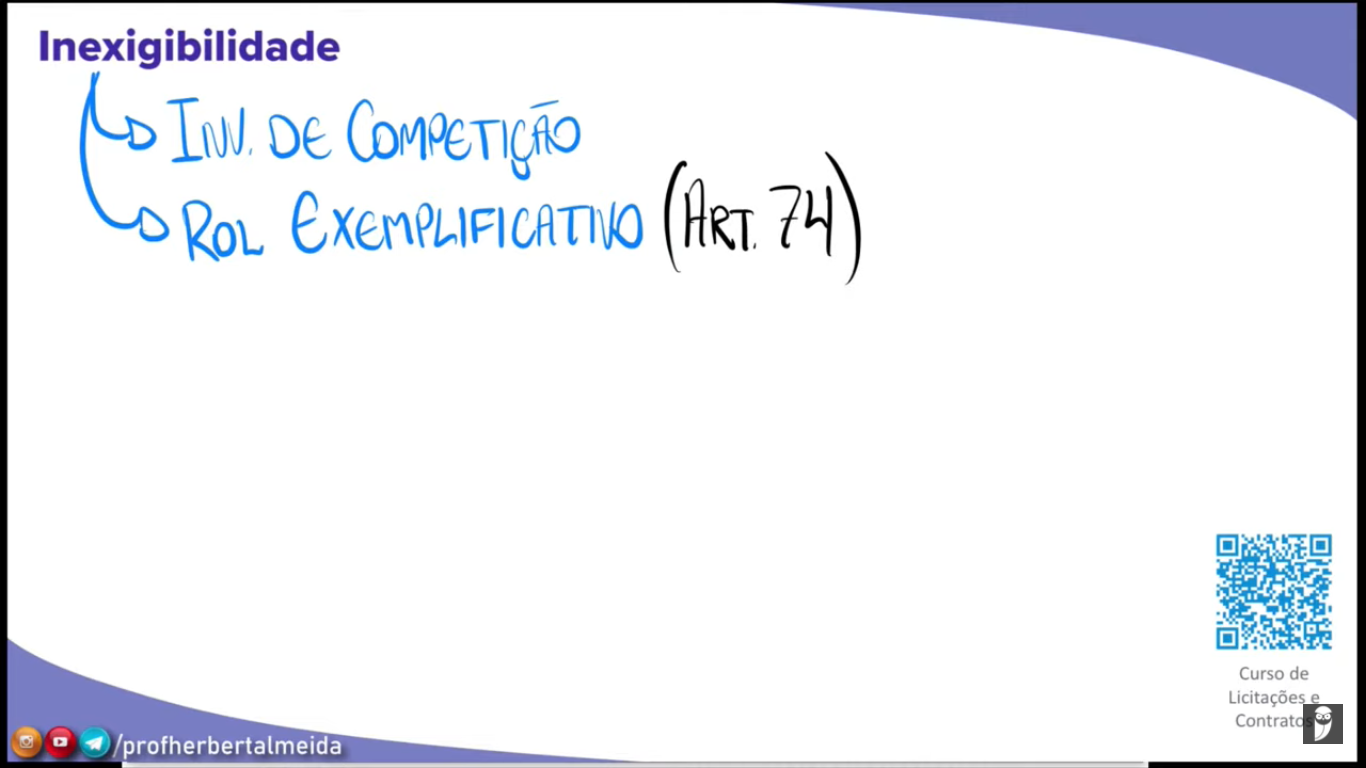 Inexigibilidade
INV. DE COMPETIÇÃO
ROL EXEMPLIFICATIVO (ART. 74)
Curso de
Licitações e
Contratos
/profherbertalmeida